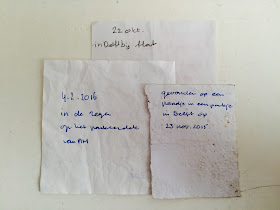 22 okt.
in Delft by
4-2-2016
in de regen
op het
van AH
gevonden op een
in een parkje
in Delft op
23 nov. 2015